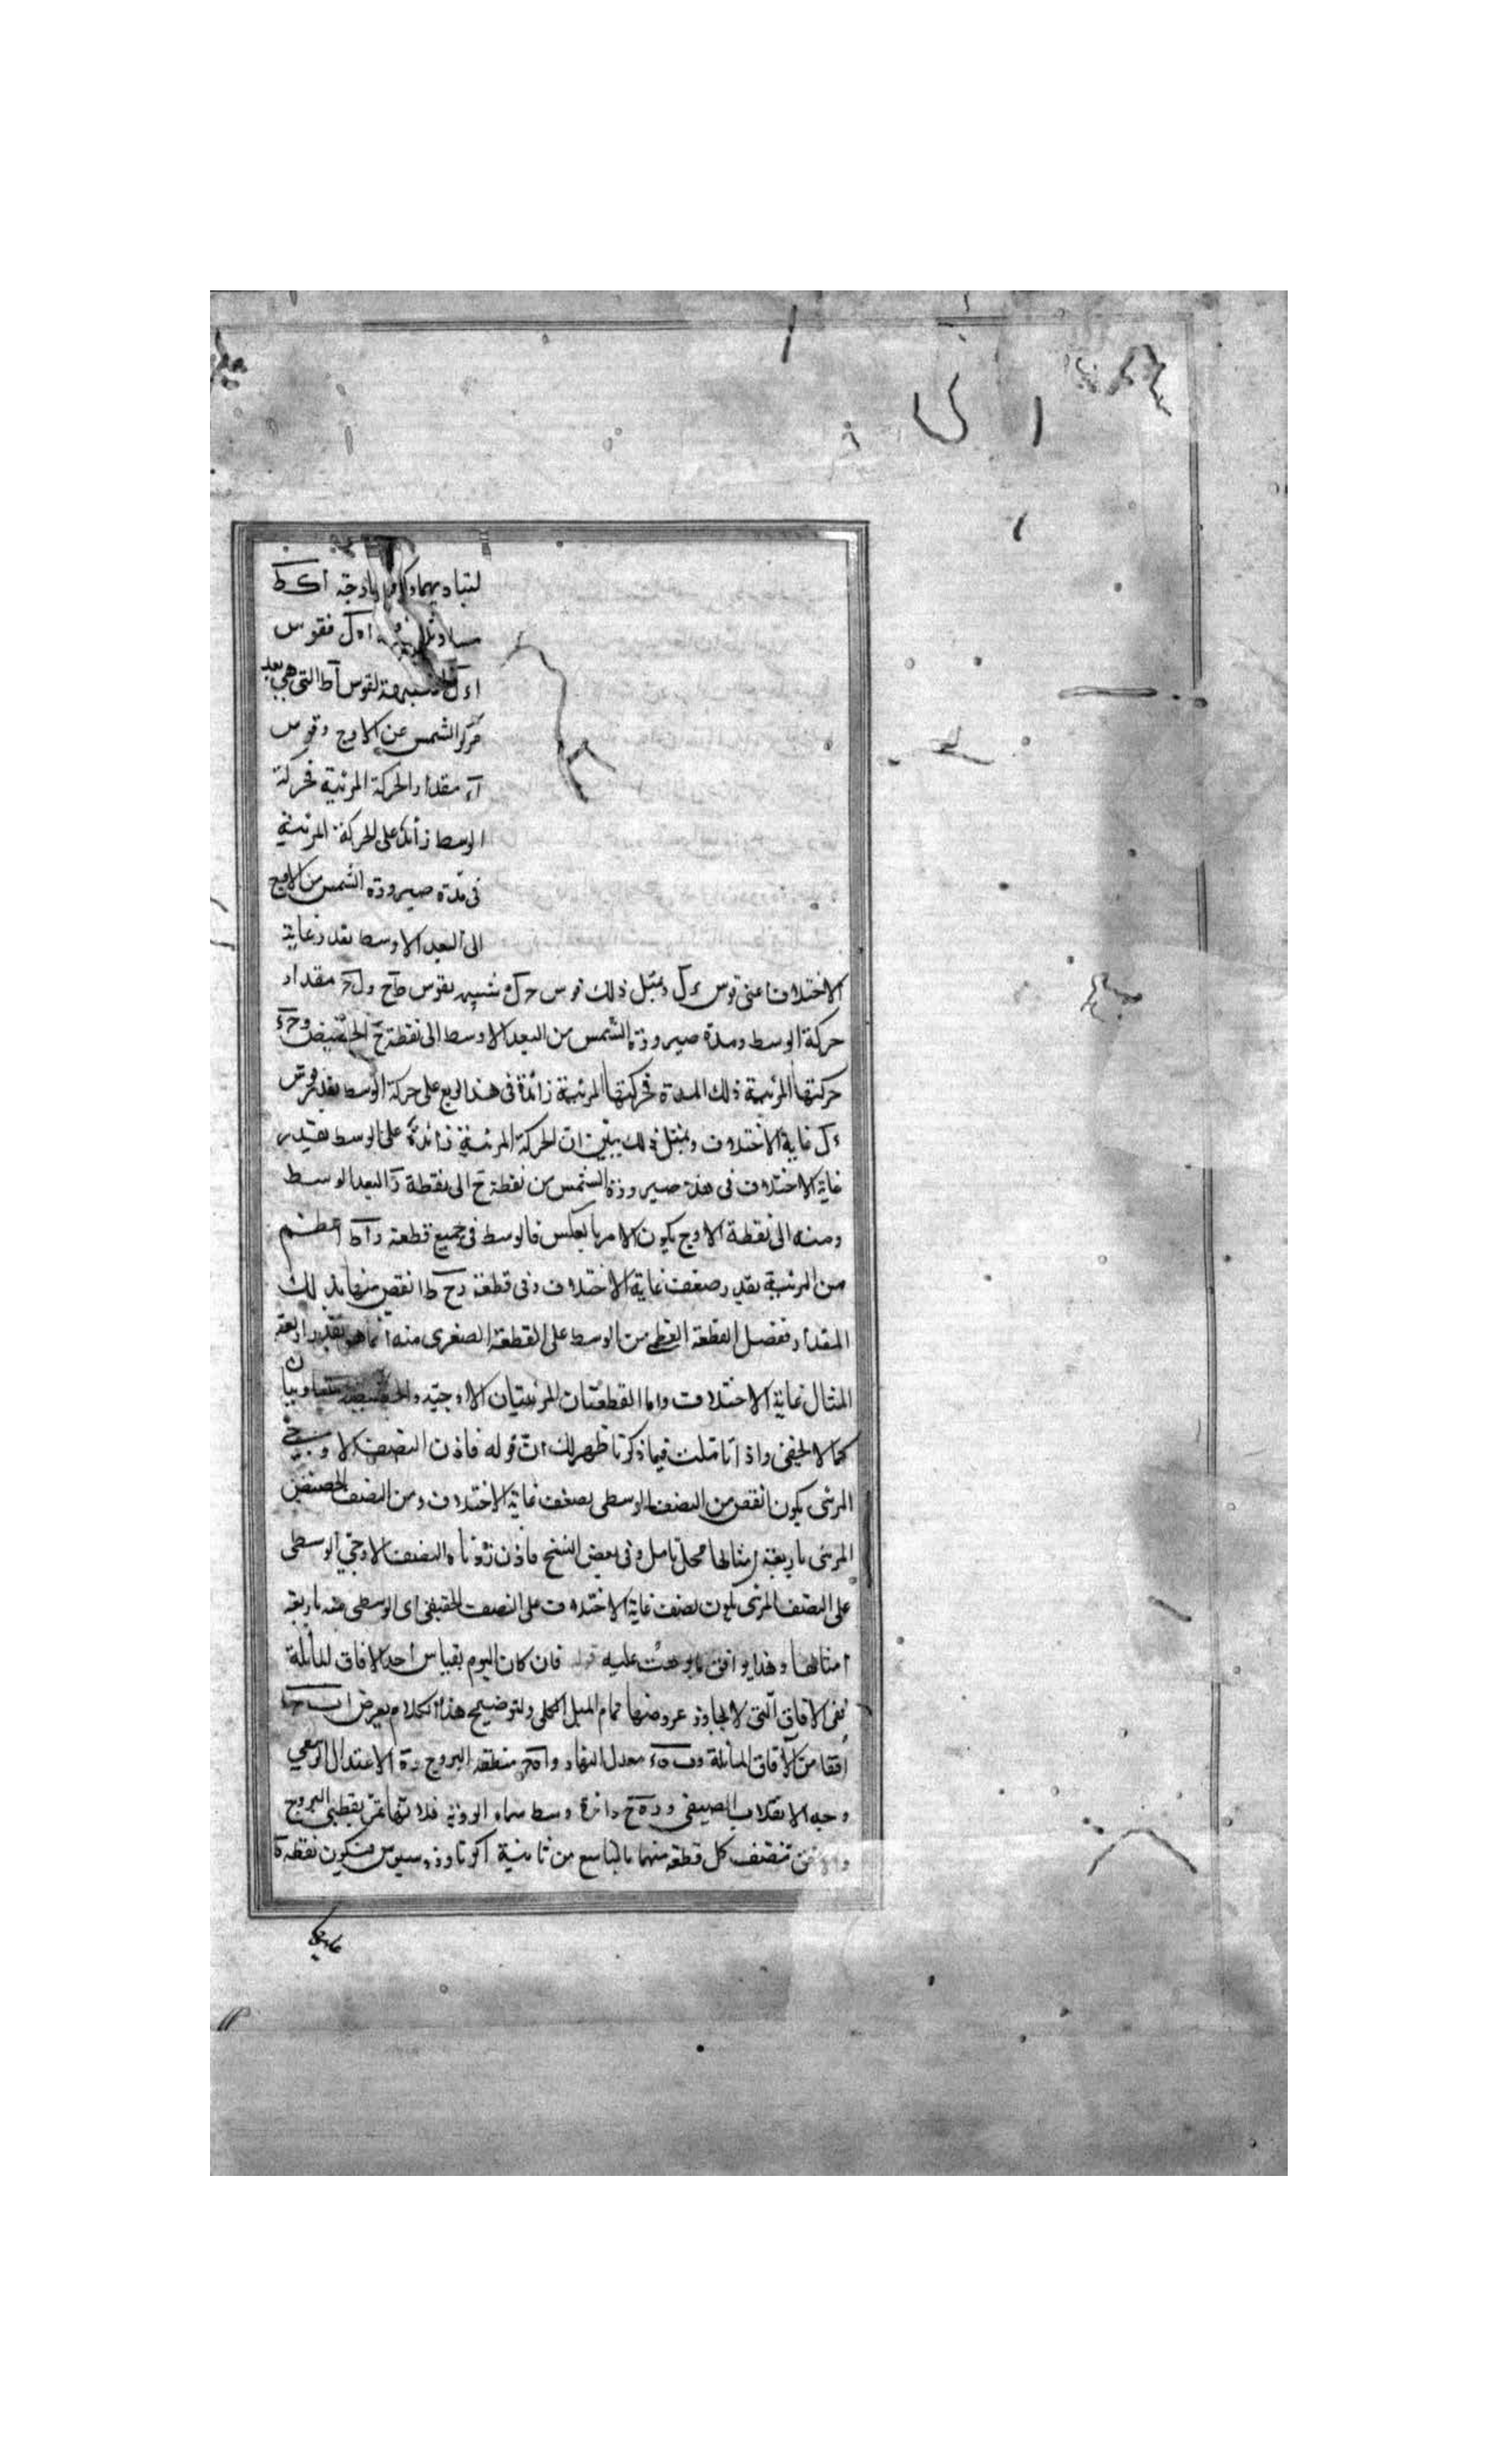 لتباديهما وكل زاوية ا ك ط
مساو اه ل فقوس
اء ل شبيهة لقوس اط التى هى بعد
مركز الشمس عن الاوج وقوس
اء مقدار الحركة المرئية فحركة
الوسط زائد على الحركة المرئية
فى مدة صيرورة الشمس من الاوج
الى البعد الاوسط بقدر غاية
الاختلاف اعنى قوس ءل وبمثل ذلك قوس حل شبيه بقوس طح ول ح مقدار
حركة الوسط ومدة صيرورة الشمس من البعد الاوسط الى نقطة ح الحضيض وحء
حركتها المرئية ذلك المدة فحركتها المرئية زائدة فى هذا الربع على حركة الوسط بقدر قوس
ءل غاية الاختلاف وبمثل ذلك يتبين ان الحركة المرئية زائدة على الوسط بقدر
غاية الاختلاف فى هذه صيرورة الشمس من نقطة ح الى نقطة ر البعد الوسط
ومنه الى نقطة الاوج يكون الامر بالعكس فالوسط فى جميع قطعة راط اعظم
من المرئية بقدر ضعف غاية الاختلاف وفى قطعة رح ط انقص منها بذلك
المقدار ففضل القطعة العظمى من الوسط على القطعة الصغرى منه انما هو بقدر اربعة
امثال غاية الاختلاف واما القطعتان المرئيتان الاوجية والحضيضية متساويتان
كما لا يخفى واذا تاملت فيما ذكرنا ظهر لك ان قوله فاذن النصف الاوجى
المرئى يكون انقص من النصف الوسطى بضعف غاية الاختلاف ومن النصف الحضيضى
المرئى باربعة امثالها محل تامل وفى بعض النسخ فاذن زيادة النصف الاوجى الوسطى
على النصف المرئى يكون بضعف غاية الاختلاف على النصف الحضيضى اى الوسطى منه باربعة
امثالها وهذا يوافق عليه قوله فان كان اليوم بقياس احد الافاق المائلة
ففى الافاق التى لا يجاوز عروضها تمام الميل الكلى ولتوضيح هذا الكلام نفرض اب ح
افقا من الافاق المائلة وب ه ء معدل النهار واه ح منطقة البروج و ه الاعتدال الربيعى
وح الانقلاب الصيفى و ر ه ح دائرة وسط سماء الرؤية فلانها تمر بقطبى البروج
والافق تنصف كل قطعة منهما بالتاسع من ثانية اكر ثاوذوسيوس فيكون نقطة ه